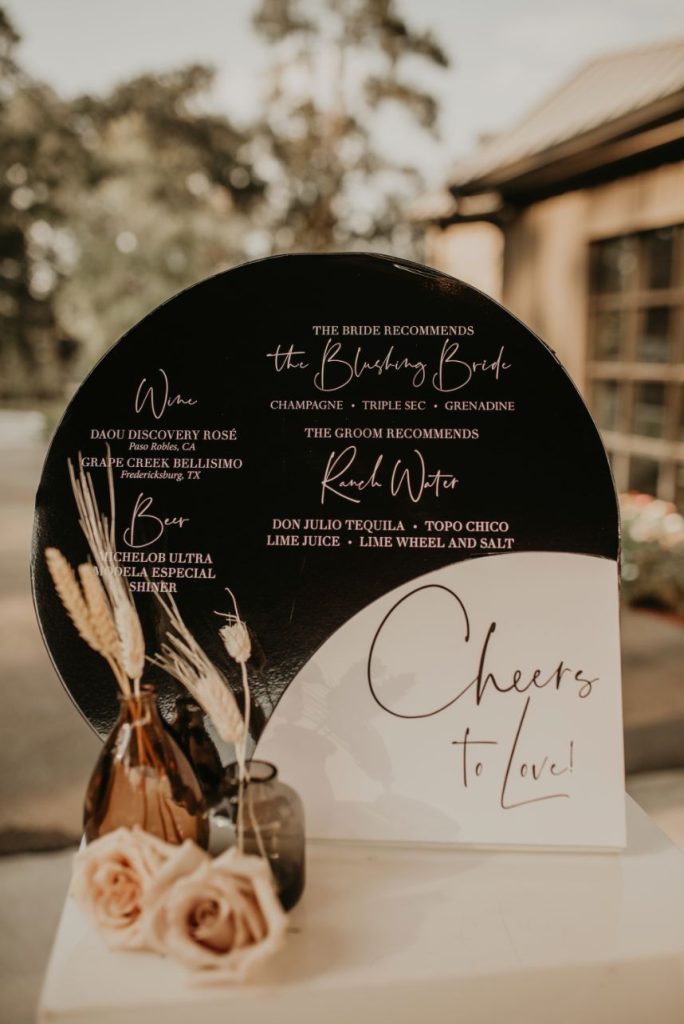 Wine
DAOU DISCOVERY ROSÉ
Paso Robles, CA
GRAPE CREEK BELLISIMO
Fredericksburg, TX
Beer
MICHELOB ULTRA
MODELA ESPECIAL
SHINER
THE BRIDE RECOMMENDS
the Blushing Bride
CHAMPAGNE • TRIPLE SEC • GRENADINE
THE GROOM RECOMMENDS
Ranch Water
DON JULIO TEQUILA • TOPO CHICO
LIME JUICE • LIME WHEEL AND SALT
Cheers
to Love!